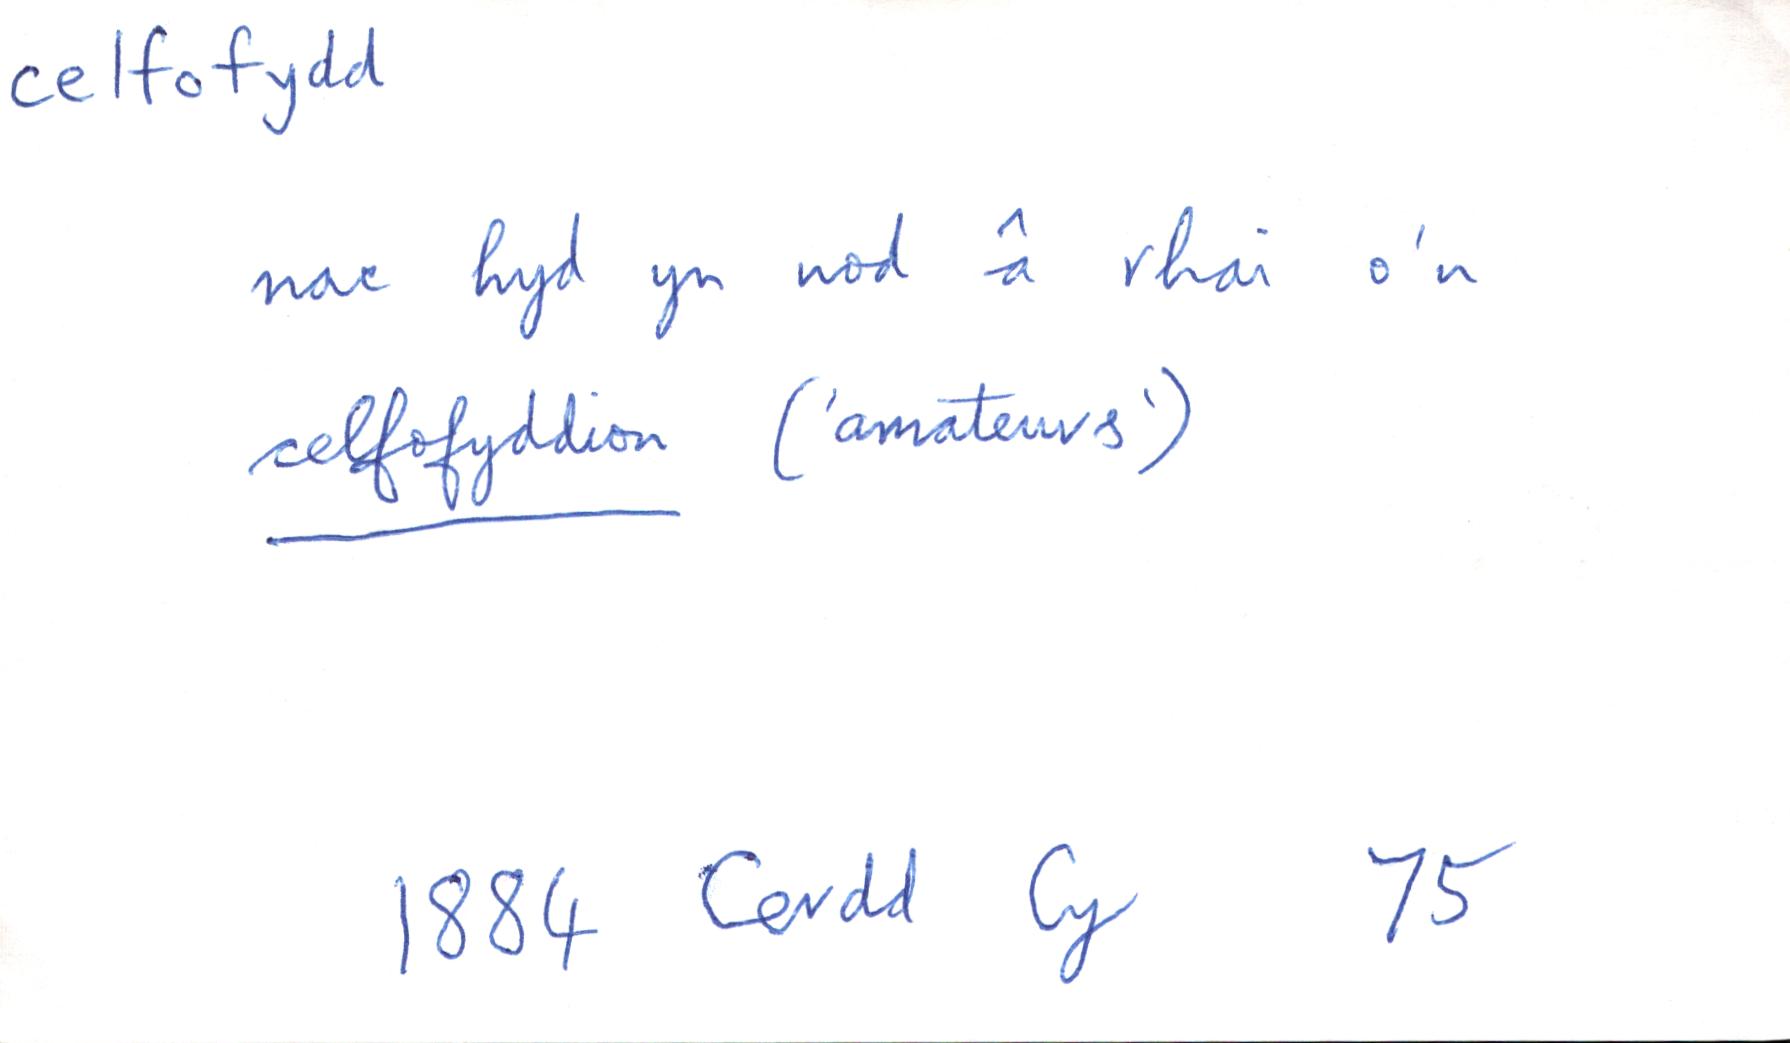 celfofydd
nac hyd yn nod â rhai o'n
celfofyddion ('amateurs')
1884 Cerdd Cy 75